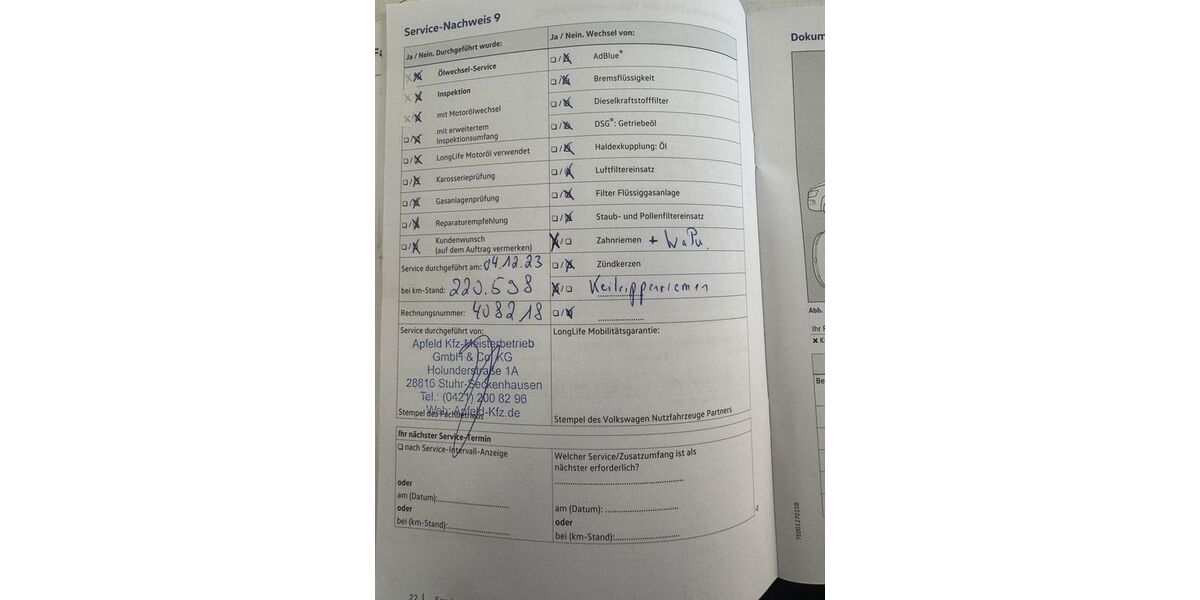 Service-Nachweis 9
Ja / Nein. Durchgeführt wurde:
Ölwechsel-Service
Inspektion
mit Motorölwechsel
mit erweitertem
Inspektionsumfang
LongLife Motoröl verwendet
Karosserieprüfung
Gasanlagenprüfung
Reparaturempfehlung
Kundenwunsch
(auf dem Auftrag vermerken)
Service durchgeführt am: 04.12.23
bei km-Stand: 220.598
Rechnungsnummer: 408218
Service durchgeführt von:
Apfeld Kfz-Meisterbetrieb
GmbH & Co. KG
Holunderstraße 1A
28816 Stuhr-Seckenhausen
Tel.: (0421) 200 82 96
Web: Apfeld-Kfz.de
Stempel des Fachbetriebs
Ja / Nein. Wechsel von:
AdBlue®
Bremsflüssigkeit
Dieselkraftstofffilter
DSG®: Getriebeöl
Haldexkupplung: Öl
Luftfiltereinsatz
Filter Flüssiggasanlage
Staub- und Pollenfiltereinsatz
Zahnriemen + WaPu.
Zündkerzen
Keilrippenriemen
LongLife Mobilitätsgarantie:
Stempel des Volkswagen Nutzfahrzeuge Partners
Ihr nächster Service-Termin
nach Service-Intervall-Anzeige
oder
am (Datum):
oder
bei (km-Stand):
Welcher Service/Zusatzumfang ist als
nächster erforderlich?
am (Datum):
oder
bei (km-Stand):
22
Dokum
Abb.
Ihr
Be
7E0012701SB